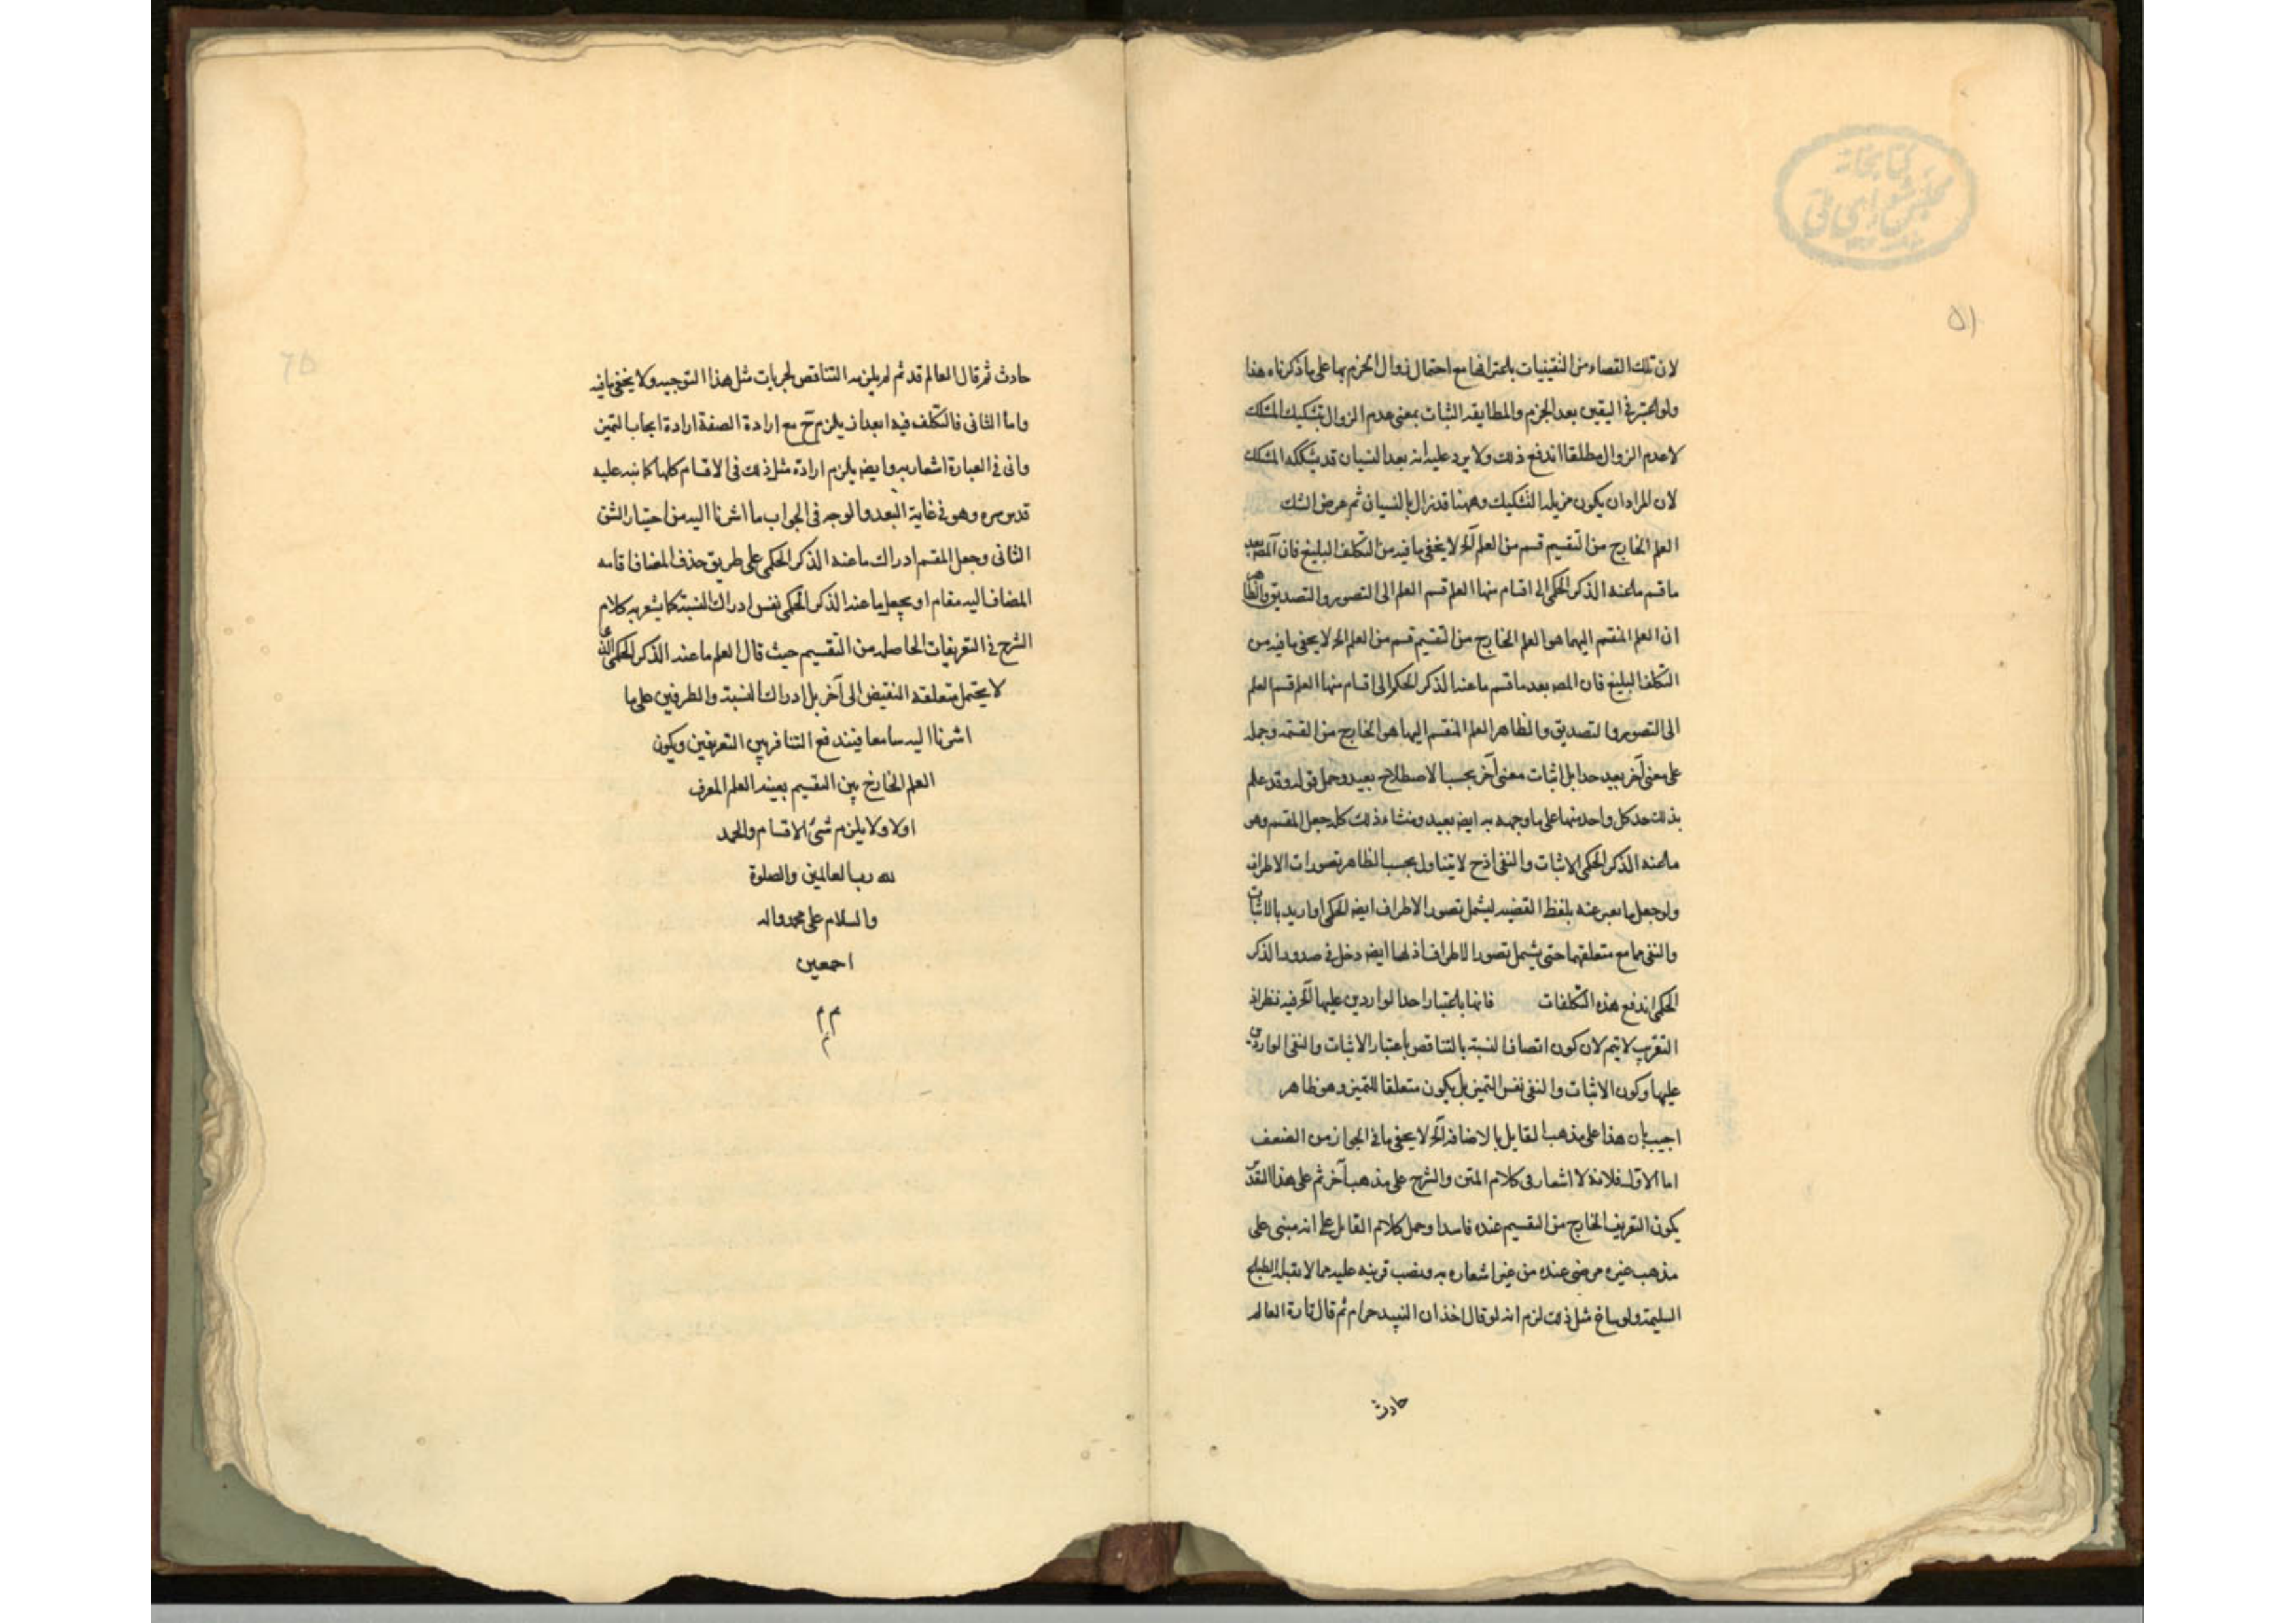 كتابخانه
مجلس شورای ملی
۵۱
لان تلك القضاء من اليقينيات باعترافنا مع احتمال زوال الجزم بها على ما ذكرناه هنا
ولو اعتبر في اليقين بعد الجزم والمطابقه الثبات بمعنى عدم الزوال بتشكيك المشكك
لا عدم الزوال مطلقا اندفع ذلك ولا يرد عليه انه بعد النسيان قد يشككه المشكك
لان المراد ان يكون مزيله التشكيك وههنا قد زال بالنسيان ثم عرض الشك
العلم الخارج من التقسيم قسم من العلم آلخ لا يخفى ما فيه من التكلف البليغ فان المصه بعد
ما قسم ما عنه الذكر الحكمى الى اقسام منها العلم قسم العلم الى التصور والتصديق والظاهر
ان العلم المنقسم اليهما هو العلم الخارج من التقسيم قسم من العلم الخ لا يخفى ما فيه من
التكلف البليغ فان المصه بعد ما قسم ما عنه الذكر الحكمى الى اقسام منها العلم قسم العلم
الى التصور والتصديق والظاهر العلم المنقسم اليهما هو الخارج من القسمة وحمله
على معنى آخر بعيد جدا بل اثبات معنى آخر بحسب الاصطلاح بعيد وحمل قوله وقد علم
بذلك حد كل واحد منها على ما وجهه به ايضه بعيد ومنشاء ذلك كله جعل المقسم وهو
ما عنه الذكر الحكمى الاثبات والنفى اذ ح لا يتناول بحسب الظاهر تصورات الاطراف
ولو جعل ما يعبر عنه بلفظ القضيه ليشمل تصور الاطراف ايضه الحكمى او اريد بالاثبات
والنفى هما مع متعلقهما حتى يشمل تصور الاطراف اذ لها ايضه دخل في صدور الذكر
الحكمى اندفع هذه التكلفات فانها باعتبار احد الواردين عليها آلخ فيه نظر اذ
التقريب لا يتم لان كون اتصاف النسبة بالتناقض باعتبار الاثبات والنفى الواردين
عليها وكون الاثبات والنفى نفس التميز بل يكون متعلقا للتميز وهو ظاهر
اجيب بان هذا على مذهب القايل بالاضافه آلخ لا يخفى ما في الجواب من الضعف
اما الاول فلانه لا اشعار فى كلام المتن والشرح على مذهب آخر ثم على هذا التقدير
يكون التعريف الخارج من التقسيم عنده فاسدا وحمل كلام القايل على انه مبنى على
مذهب غيره مرضى عنده من غير اشعاره به ونصب قرينه عليه مما لا يقبله الطباع
السليمة ولو ساغ مثل ذلك لزم انه لو قال احد ان النبيد حرام ثم قال تارة العالم
حادث
حادث ثم قال العالم قديم لم يلزمه التناقض لجريات مثل هذا التوجيه ولا يخفى ما فيه
واما الثانى فالتكلف فيه ابعد اذ يلزم ح مع ارادة الصفة ارادة ايجابها التميز
وانى في العبارة اشعار به وايضه يلزم ارادة مثل ذلك فى الاقسام كلها كما نبه عليه
قدس سره وهو في غاية البعد والوجه فى الجواب ما اشرنا اليه من اختيار الشق
الثانى وجعل المقسم ادراك ما عنه الذكر الحكمى على طريق حذف المضاف اقامه
المضاف اليه مقامه او يجعل ما عنه الذكر الحكمى نفس ادراك النسبة كما يشعر به كلام
الشرح في التعريفات الحاصله من التقسيم حيث قال العلم ما عنه الذكر الحكمى الذى
لا يحتمل متعلقه النقيض الى آخره بل ادراك النسبة والطرفين على ما
اشرنا اليه سامعا فيندفع التنافر بين التعريفين ويكون
العلم الخارج من التقسيم بعينه العلم المعرف
اولا ولا يلزم شئ الاقسام والحمد
لله رب العالمين والصلوة
والسلام على محمد واله
اجمعين
م م م